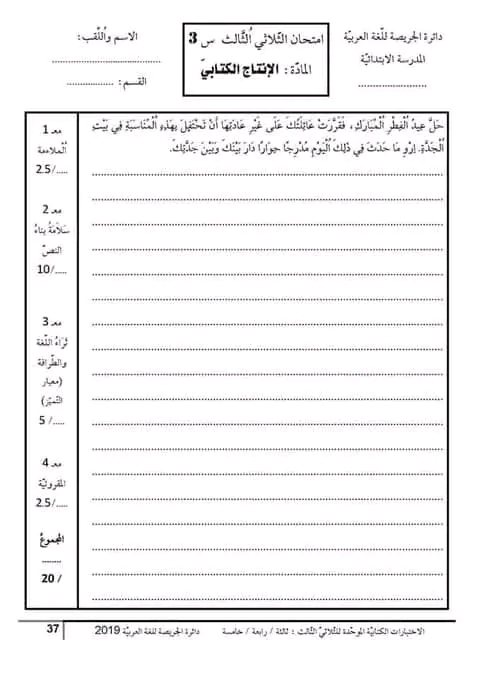 دائرة الجريصة للّغة العربيّة
المدرسة الابتدائيّة
........................
امتحان الثّلاثي الثّالث س 3
المادّة : الإنتاج الكتابيّ
الاسم واللّقب:
......................................
القسم : ................
حَلَّ عِيدُ الْفِطْرِ الْمُبَارَكِ، فَقَرَّرَتْ عَائِلَتُكَ عَلَى غَيْرِ عَادَتِهَا أَنْ تَحْتَفِلَ بِهَذِهِ الْمُنَاسَبَةِ فِي بَيْتِ
الْجَدَّةِ. اِرْوِ مَا حَدَثَ فِي ذَلِكَ الْيَوْمِ مُدْرِجًا حِوَارًا دَارَ بَيْنَكَ وَبَيْنَ جَدَّتِكَ.
معـ 1
الْملاءمة
2.5/.....
معـ 2
سَلَامَةُ بِنَاءُ
النصّ
10/.....
معـ 3
ثَرَاءُ اللّغة
والطّرافة
(معيار
التّميّز)
5 /.....
معـ 4
المقروئيّة
2.5/.....
المجموعُ
........
20 /
الاختبارات الكتابيّة الموحّدة للثّلاثيّ الثّالث : ثالثة / رابعة / خامسة دائرة الجريصة للغة العربيّة 2019
37